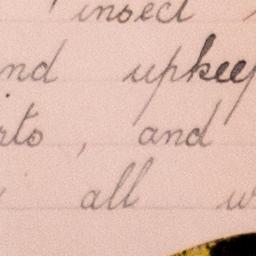 insect
nd upkeep
rto, and
all w